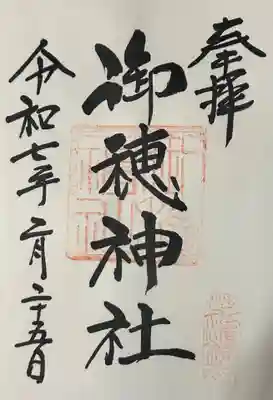 奉拝
御穂神社
令和七年二月二十五日